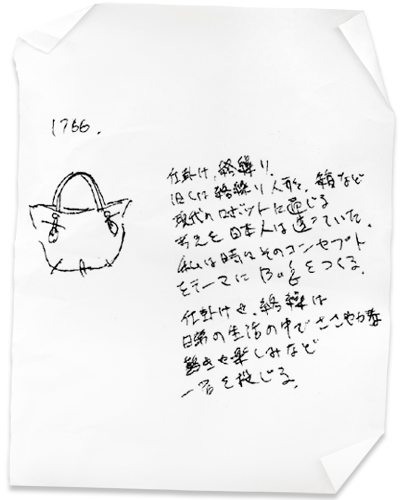 仕掛け、絡繰り.
旧くは絡繰り人形や、箱など
現代のロボットに通じる
考えを日本人は造っていた.
私は時にそのコンセプト
をテーマに Bagをつくる.
仕掛けや、絡繰は
日常の生活の中でささやかな
驚きや楽しみなど
一石を投じる.